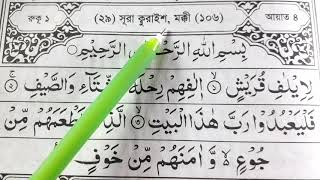 রুকু ১ (২৯) সূরা কুরাইশ, মক্কী (১০৬) আয়াত ৪
بِسْمِ اللّٰهِ الرَّحْمٰنِ الرَّحِيْمِ
لِاِيْلٰفِ قُرَيْشٍ ۝١ اٖلٰفِهِمْ رِحْلَةَ الشِّتَآءِ وَالصَّيْفِ ۝٢
فَلْيَعْبُدُوْا رَبَّ هٰذَا الْبَيْتِ ۝٣ الَّذِيْٓ اَطْعَمَهُمْ مِّنْ
جُوْعٍ ۙ وَّاٰمَنَهُمْ مِّنْ خَوْفٍ